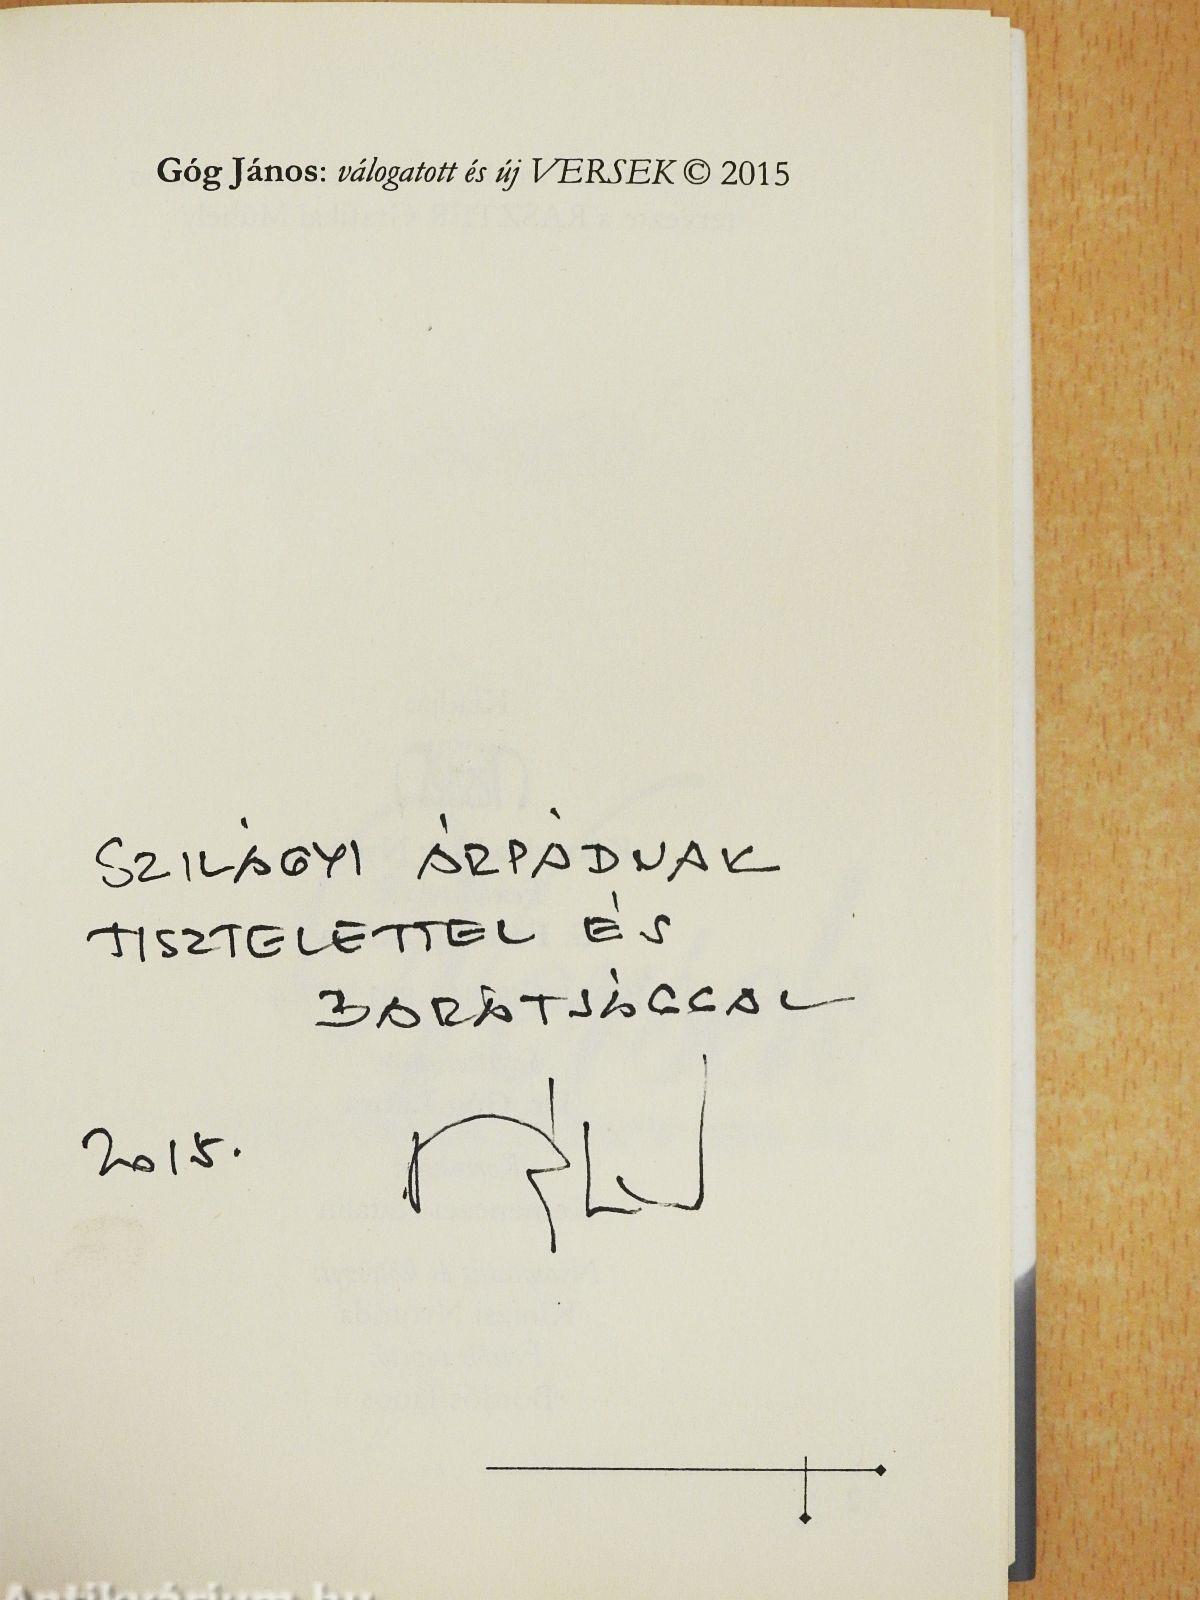 Góg János: válogatott és új VERSEK © 2015
SZILÁGYI ÁRPÁDNAK
TISZTELETTEL ÉS
BARÁTSÁGGAL
2015.
Antikvárium.hu